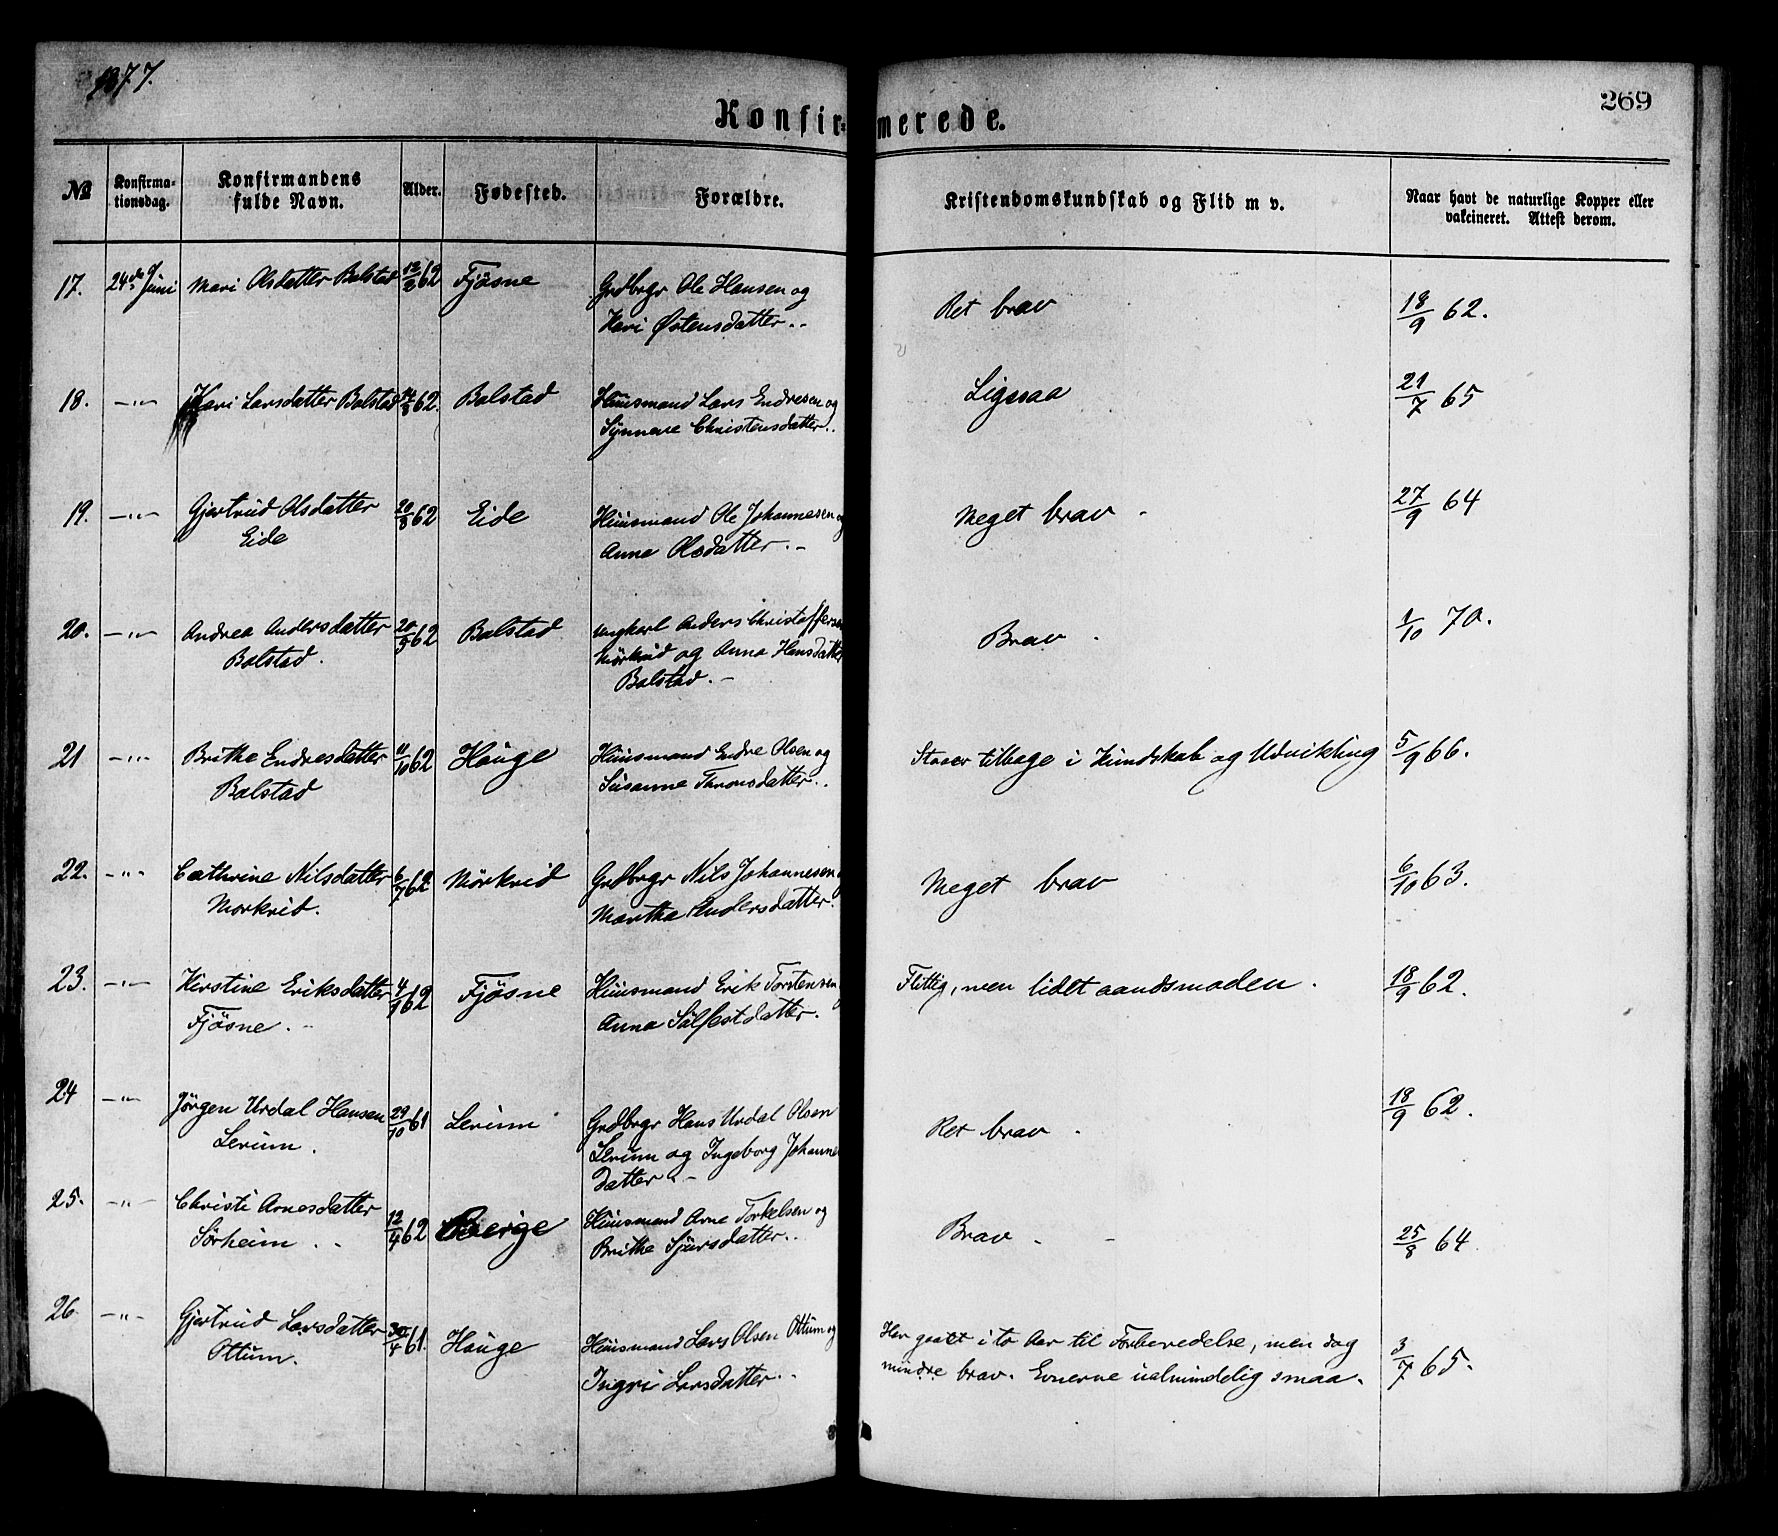 1877.
269
Konfirmerede.
No Konfirmationsdag. Konfirmandens fulde Navn. Alder. Fødested. Forældre. Kristendomskundskab og Flid m v. Naar havt de naturlige Kopper eller vakcineret. Attest derom.
17. 24de Juni Mari Olsdatter Bolstad 62 Fjøsne Grdbrgr Ole Hansen og Ret brav 18/9 62.
Kari Østensdatter..
18. —"— Kari Larsdatter Bolstad 62. Bolstad Huusmand Lars Endresen og Ligesaa 21/7 65
Synneve Christensdatter..
19. —"— Gjertrud Olsdatter 62 Eide Huusmand Ole Johannesen og Meget brav - 27/9 64
Eide Anna Olsdatter.-
20. —"— Andrea Andersdatter 62 Bolstad Ungkarl Anders Christoffersen Brav . 1/10 70.
Bolstad. Mörkrid og Anna Hansdatter
Bolstad.-
21 —"— Brithe Endresdatter 11/10 62 Hauge Huusmand Endre Olsen og Staaer tilbage i Kundskab og Udvikling 5/9 66.
Bolstad Susanne Thronsdatter..
22. -"- Cathrine Nilsdatter 6/7 62 Mörkrid Grdbrgr Nils Johannesen Meget brav 6/10 63.
Morkrid. Martha Andersdatter.
23. —"— Kirstine Eriksdatter 62 Fjøsne Huusmand Erik Torstensen Flittig, men lidet aandsmoden. 18/9 62.
Fjøsne.- Anna Sülfestdatter.
24 —"— Jörgen Urdal Hansen 29/10 61 Lerum Grdbrgr Hans Urdal Olsen Ret brav . 18/9 62.
Lerum. Lerum og Ingeborg Johanne
datter.-
25. -"- Christi Arnesdatter 12/4 62 Berge Huusmand Arne Torkelsen og Brav. - 25/8 64
Sørheim.. Brithe Sjursdatter..
26. —"— Gjertrud Larsdatter 30/4 61. Hauge Huusmand Lars Olsen Ottum og Har gaaet i to Aar til Forberedelse, men dog 3/7 65.
Ottum. Ingri Larsdatter.. mindre brav. Evnerne ualmindelig smaa.